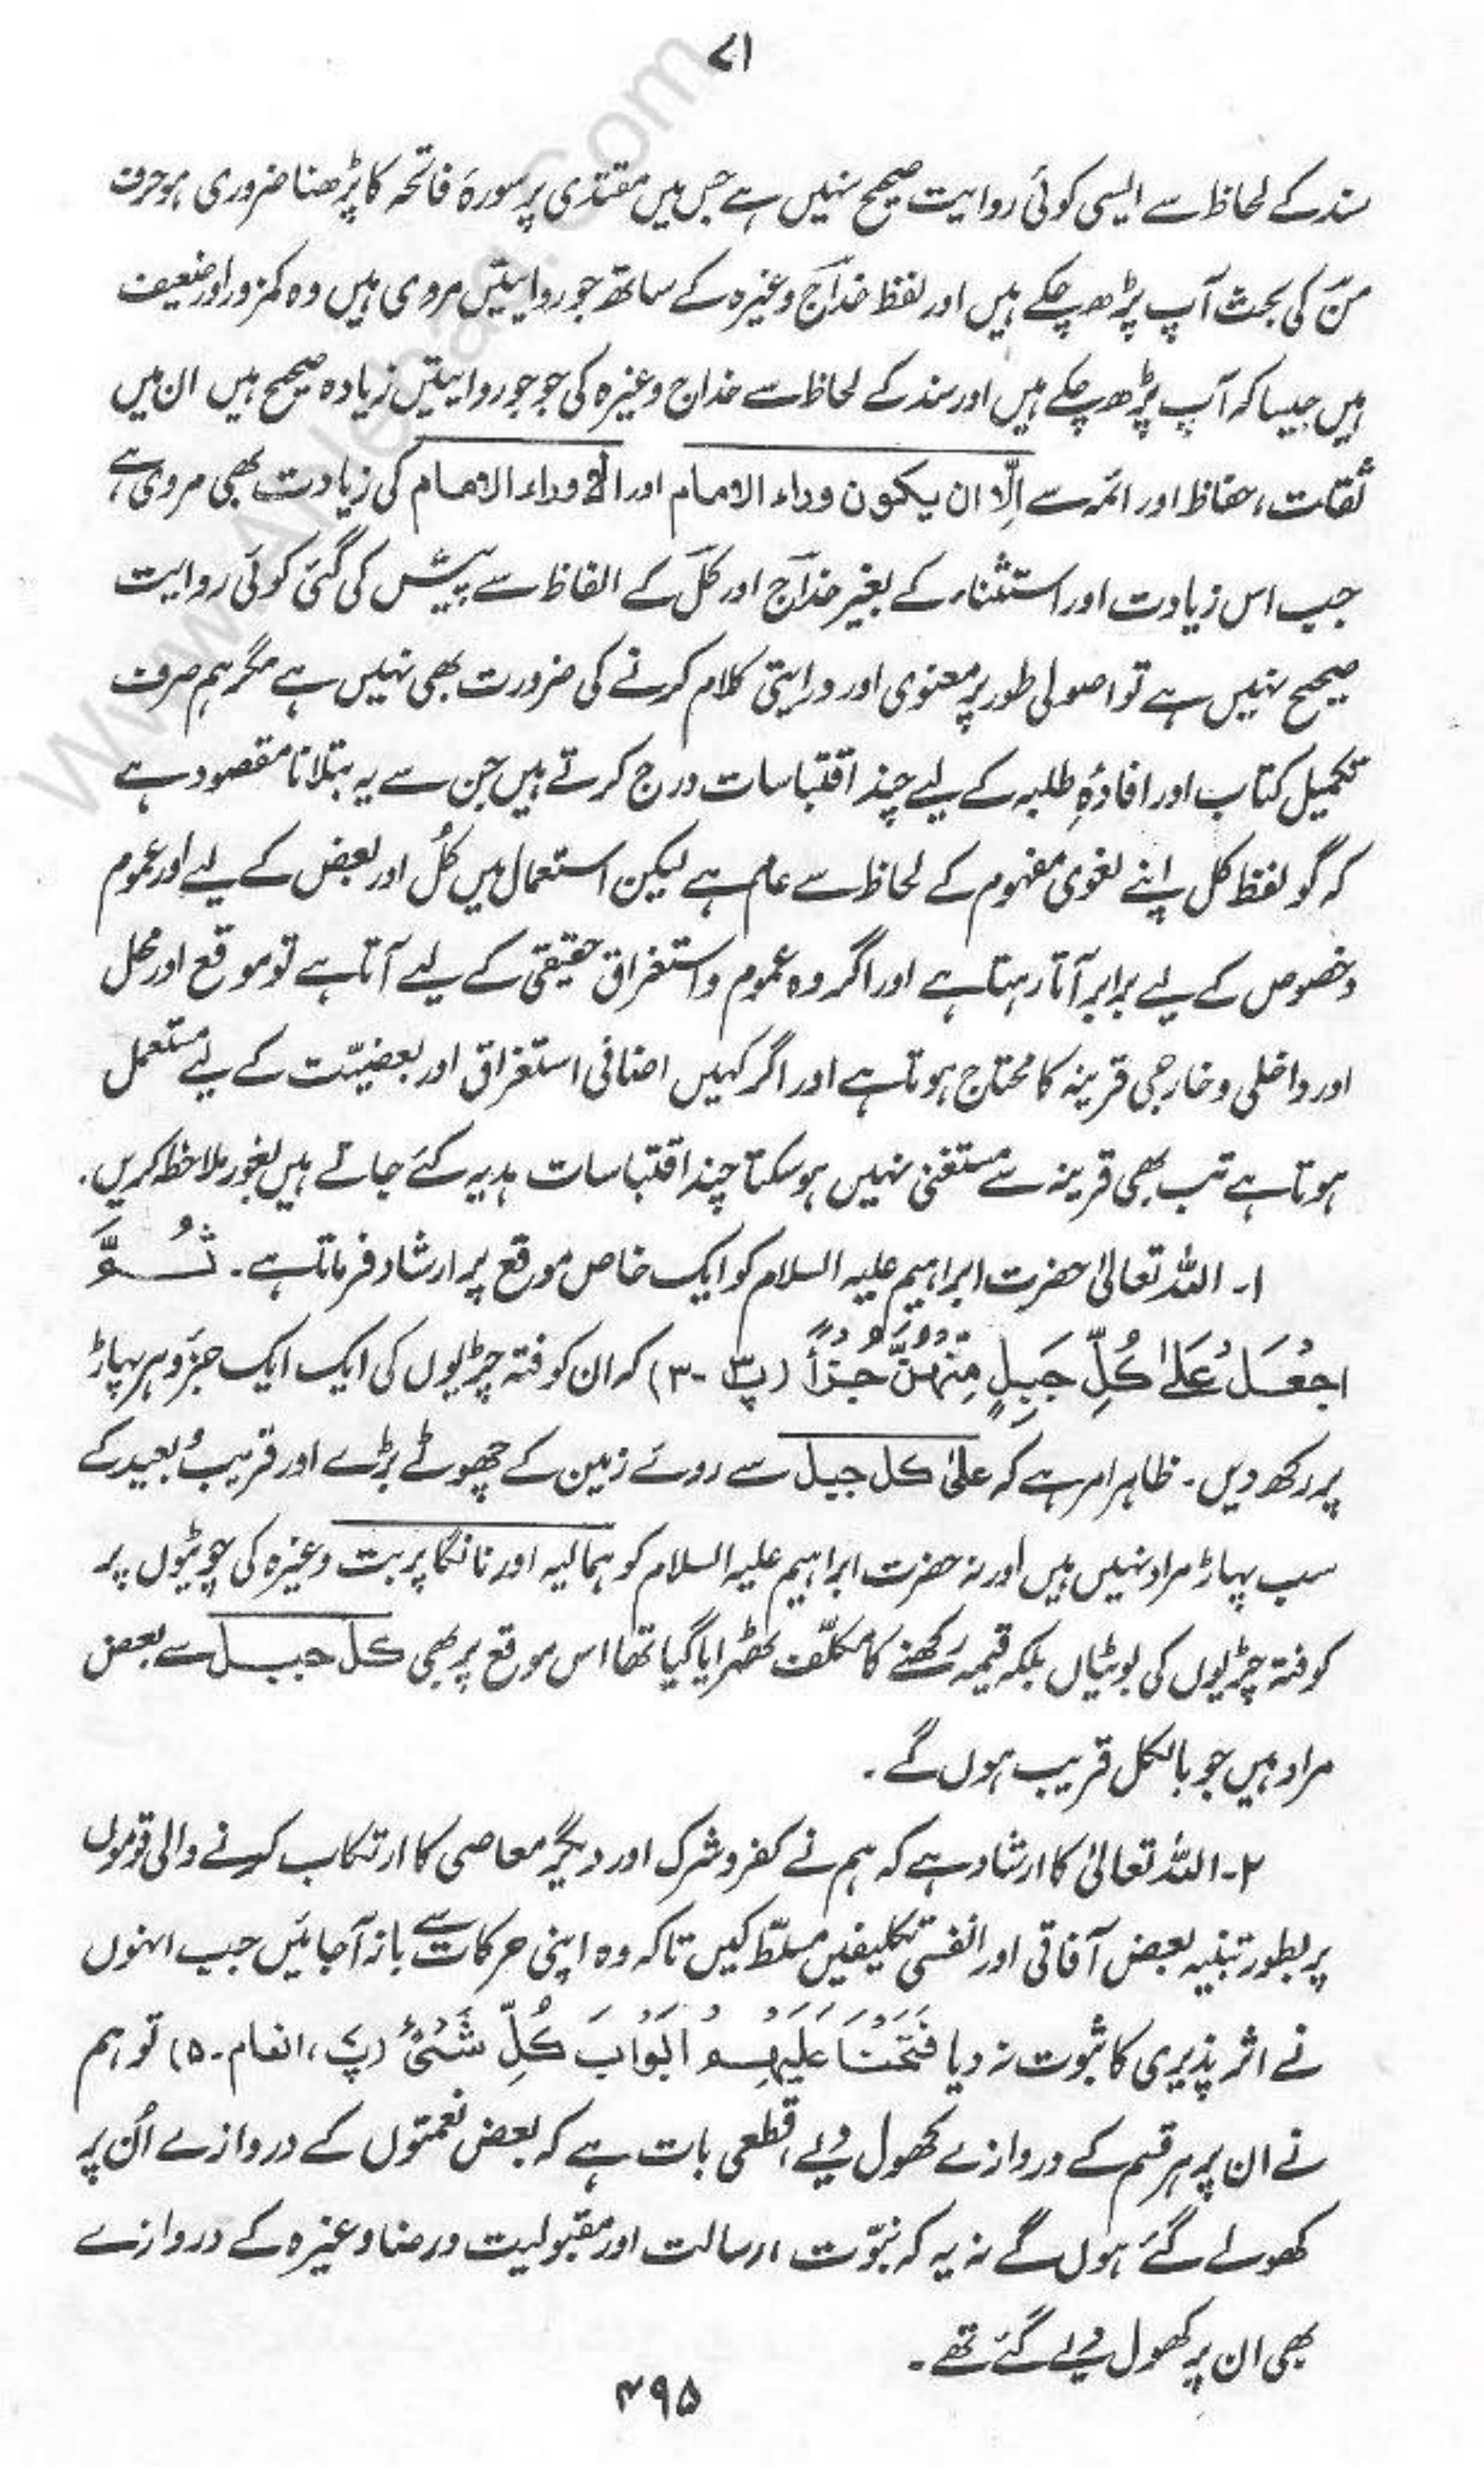 ۷۱
سند کے لحاظ سے ایسی کوئی روایت صحیح نہیں ہے جس میں مقتدی پر سورۂ فاتحہ کا پڑھنا ضروری ہو حرف
منؔ کی بحث آپ پڑھ چکے ہیں اور لفظ خداجؔ وغیرہ کے ساتھ جو روایتیں مروی ہیں وہ کمزور اور ضعیف
ہیں جیسا کہ آپ پڑھ چکے ہیں اور سند کے لحاظ سے خداج وغیرہ کی جو جو روایتیں زیادہ صحیح ہیں ان میں
ثقات، حفاظ اور ائمہ سے اِلَّا ان یکون وراء الامام اور الا وراء الامام کی زیادت بھی مروی ہے
جب اس زیادت اور استثناء کے بغیر خداجؔ اور کلؔ کے الفاظ سے پیش کی گئی کوئی روایت
صحیح نہیں ہے تو اصولی طور پر معنوی اور درایتی کلام کرنے کی ضرورت بھی نہیں ہے مگر ہم صرف
تکمیل کتاب اور افادۂِ طلبہ کے لیے چند اقتباسات درج کرتے ہیں جن سے یہ بتلانا مقصود ہے
کہ گو لفظ کل اپنے لغوی مفہوم کے لحاظ سے عام ہے لیکن استعمال میں کُل اور بعض کے لیے اور عموم
و خصوص کے لیے برابر آتا رہتا ہے اور اگر وہ عموم و استغراق حقیقی کے لیے آتا ہے تو موقع اور محل
اور داخلی و خارجی قرینہ کا محتاج ہوتا ہے اور اگر کہیں اضافی استغراق اور بعضیّت کے لیے مستعمل
ہوتا ہے تب بھی قرینہ سے مستغنی نہیں ہو سکتا چند اقتباسات ہدیہ کئے جاتے ہیں بغور ملاحظہ کریں.
۱۔ اللہ تعالیٰ حضرت ابراہیم علیہ السلام کو ایک خاص موقع پر ارشاد فرماتا ہے۔ ثُمَّ
اجْعَلْ عَلٰی کُلِّ جَبَلٍ مِّنْهُنَّ جُزْءًا (پ۳ -۳) کہ ان کوفتہ چڑیوں کی ایک ایک جزو ہر پہاڑ
پر رکھ دیں۔ ظاہر امر ہے کہ علیٰ کل جبل سے روئے زمین کے چھوٹے بڑے اور قریب و بعید کے
سب پہاڑ مراد نہیں ہیں اور نہ حضرت ابراہیم علیہ السلام کو ہمالیہ اور نانگا پربت وغیرہ کی چوٹیوں پر
کوفتہ چڑیوں کی بوٹیاں بلکہ قیمہ رکھنے کا مکلّف ٹھہرایا گیا تھا اس موقع پر بھی کل جبل سے بعض
مراد ہیں جو بالکل قریب ہوں گے۔
۲۔ اللہ تعالیٰ کا ارشاد ہے کہ ہم نے کفر و شرک اور دیگر معاصی کا ارتکاب کرنے والی قوموں
پر بطور تنبیہ بعض آفاقی اور انفسی تکلیفیں مسلّط کیں تاکہ وہ اپنی حرکات سے باز آجائیں جب انہوں
نے اثر پذیری کا ثبوت نہ دیا فَتَحْنَا عَلَیْهِمْ اَبْوَابَ کُلِّ شَیْءٍ (پ۷، انعام۔۵) تو ہم
نے ان پر ہر قسم کے دروازے کھول دیے، قطعی بات ہے کہ بعض نعمتوں کے دروازے اُن پر
کھولے گئے ہوں گے نہ یہ کہ نبوّت، رسالت اور مقبولیت و رضا وغیرہ کے دروازے
بھی ان پر کھول دیے گئے تھے۔
۴۹۵